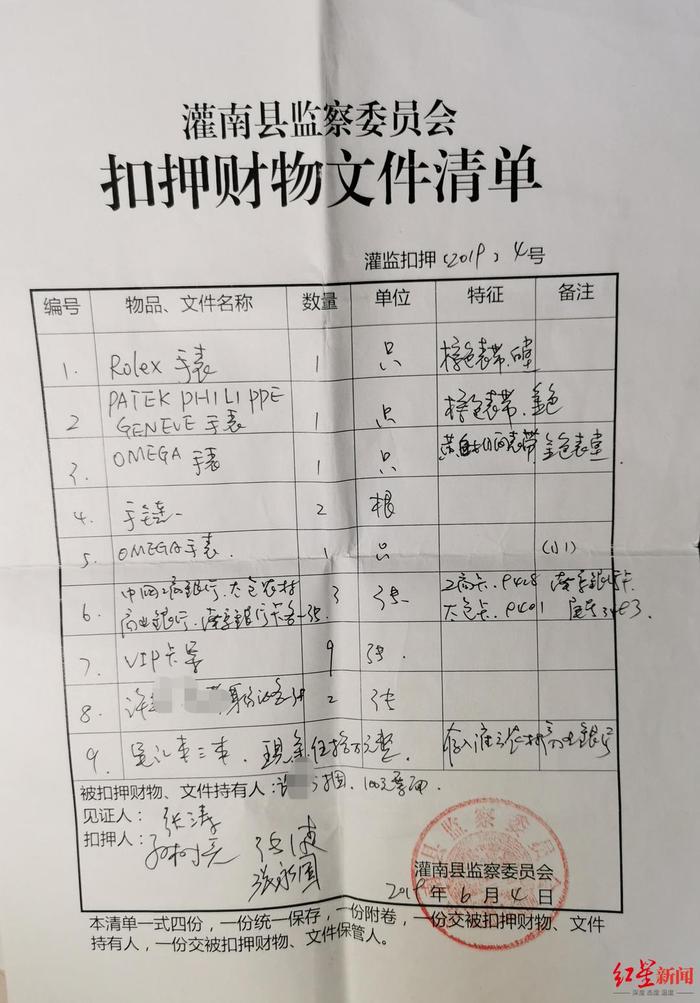 灌南县监察委员会
扣押财物文件清单
灌监扣押（2019）4号
编号 物品、文件名称 数量 单位 特征 备注
1. Rolex 手表 1 只 棕色表带
2 PATEK PHILIPPE GENEVE 手表 1 只 棕色表带、金色
3. OMEGA 手表 1 只 表带 金色表
4. 手 2 根
5. OMEGA手表. 1 只 (小1)
6. 中国工商银行、太仓农村 3 张 工商卡.9428 南京银行卡
商业银行、南京银行卡各一张 太仓卡.9401 尾号3483
7. VIP卡等 9 张.
8. 许 身份证各 2 张
9. 笔记本三本、现金 万元整. 存入灌 农村商业银行
被扣押财物、文件持有人：
见证人： 张涛
扣押人：
张永国
灌南县监察委员会
2019年6月4日
本清单一式四份，一份统一保存，一份附卷，一份交被扣押财物、文件
持有人，一份交被扣押财物、文件保管人。
红星新闻
深度 态度 温度